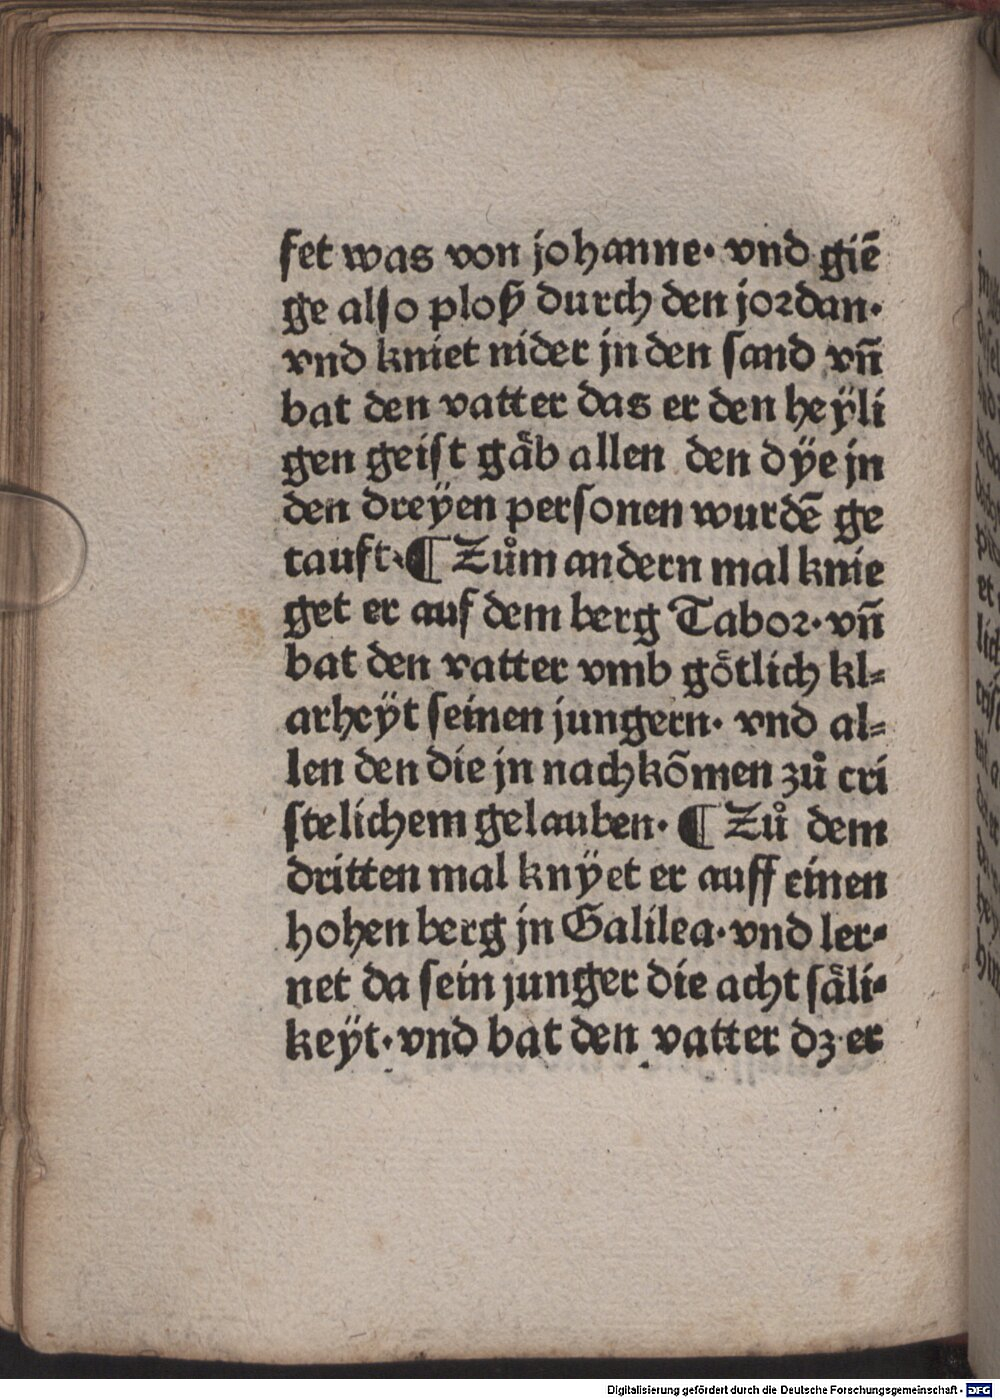 fet was von johanne· vnd giē
ge also ploß durch den jordan·
vnd kniet nider jn den sand vn̄
bat den vatter das er den heÿli
gen geist gåb allen den dÿe jn
den dreÿen personen wurdē ge
tauft· ¶ Zům andern mal knie
get er auf dem berg Tabor· vn̄
bat den vatter vmb götlich kl⸗
arheÿt seinen jungern· vnd al⸗
len den die jn nachkōmen zů cri
stelichem gelauben· ¶ Zů dem
dritten mal knÿet er auff einen
hohen berg jn Galilea· vnd ler⸗
net da sein junger die acht såli⸗
keÿt· vnd bat den vatter dz er
Digitalisierung gefördert durch die Deutsche Forschungsgemeinschaft - DFG